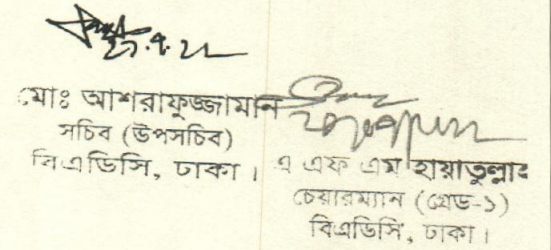 মোঃ আশরাফুজ্জামান
সচিব (উপসচিব)
বিএডিসি, ঢাকা।
এ এফ এম হায়াতুল্লাহ
চেয়ারম্যান (গ্রেড-১)
বিএডিসি, ঢাকা।